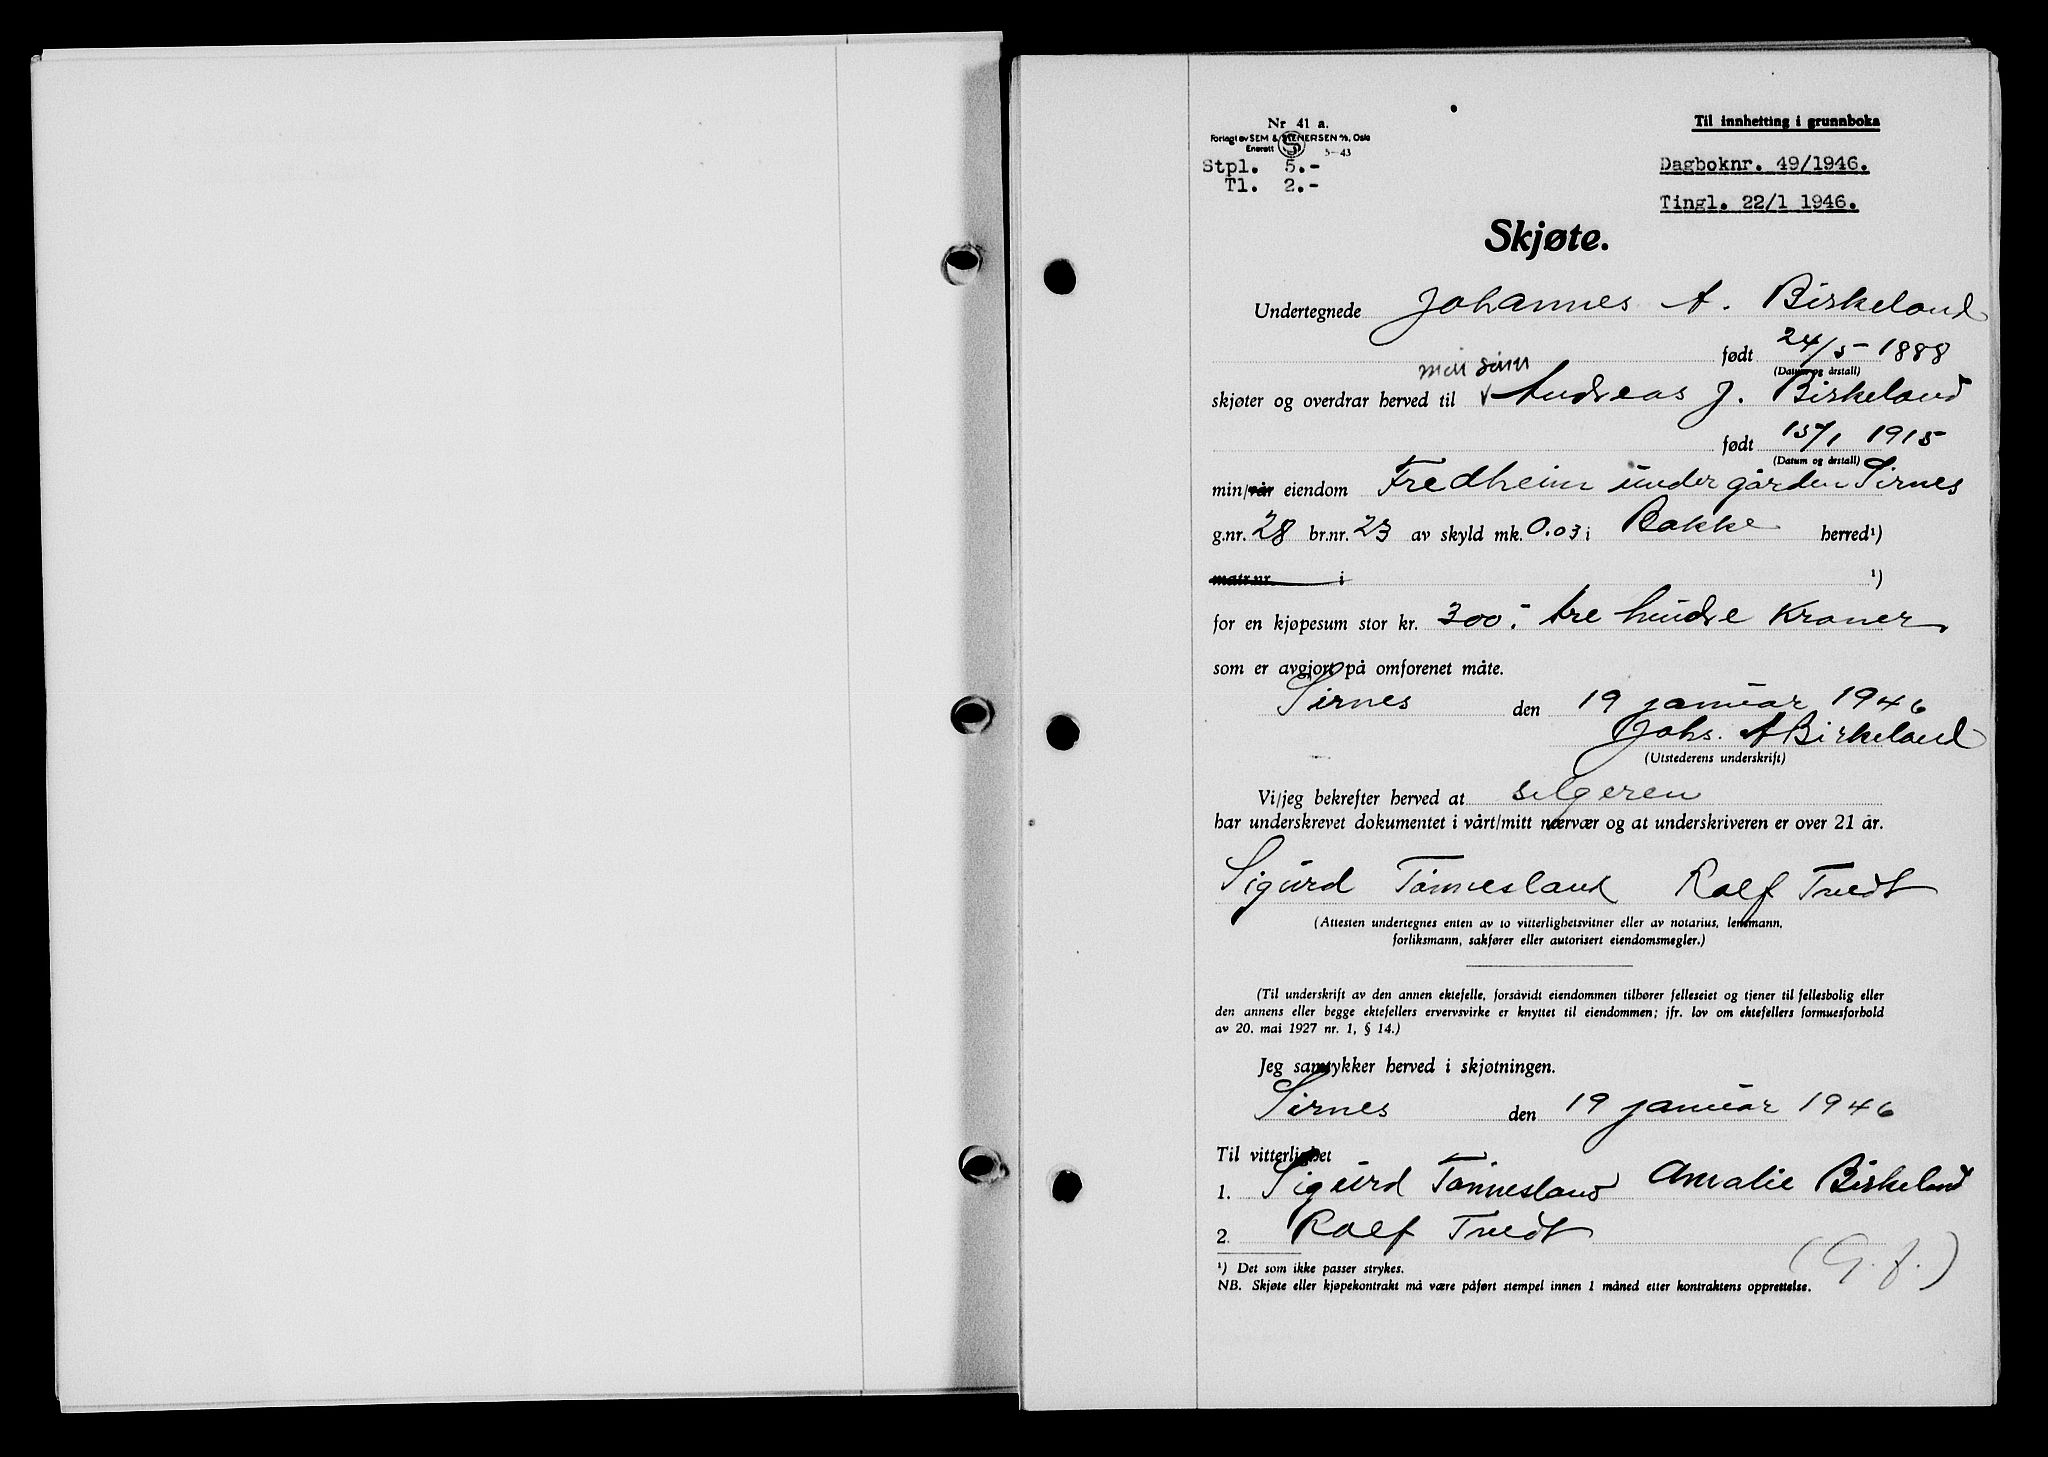 Nr 41 a.
Forlagt av SEM & STENERSEN A/S, Oslo
Enerett 5-43
Stpl. 5.-
Tl. 2.-
Til innhefting i grunnboka
Dagboknr. 49/1946.
Tingl. 22/1 1946.
Skjøte.
Undertegnede Johannes A. Birkeland
født 24/5 1888
(Datum og årstall)
min sønn
skjøter og overdrar herved til Andreas J. Birkeland
født 15/1 1915
(Datum og årstall)
min/vår eiendom Fredheim under gården Sirnes
g.nr. 28 br.nr. 23 av skyld mk. 0.03 i Bakke herred¹)
matr.nr. i ¹)
for en kjøpesum stor kr. 300.- tre hundre kroner
som er avgjort på omforenet måte.
Sirnes den 19 januar 1946
Johs. A Birkeland
(Utstederens underskrift)
Vi/jeg bekrefter herved at selgeren
har underskrevet dokumentet i vårt/mitt nærvær og at underskriveren er over 21 år.
Sigurd Tønnesland Rolf Tvedt
(Attesten undertegnes enten av to vitterlighetsvitner eller av notarius, lensmann,
forliksmann, sakfører eller autorisert eiendomsmegler.)
(Til underskrift av den annen ektefelle, forsåvidt eiendommen tilhører felleseiet og tjener til fellesbolig eller
den annens eller begge ektefellers ervervsvirke er knyttet til eiendommen; jfr. lov om ektefellers formuesforhold
av 20. mai 1927 nr. 1, § 14.)
Jeg samtykker herved i skjøtningen.
Sirnes den 19 januar 1946
Til vitterlighet
1. Sigurd Tønnesland Amalie Birkeland
2. Rolf Tvedt
(G.f.)
¹) Det som ikke passer strykes.
NB. Skjøte eller kjøpekontrakt må være påført stempel innen 1 måned etter kontraktens opprettelse.